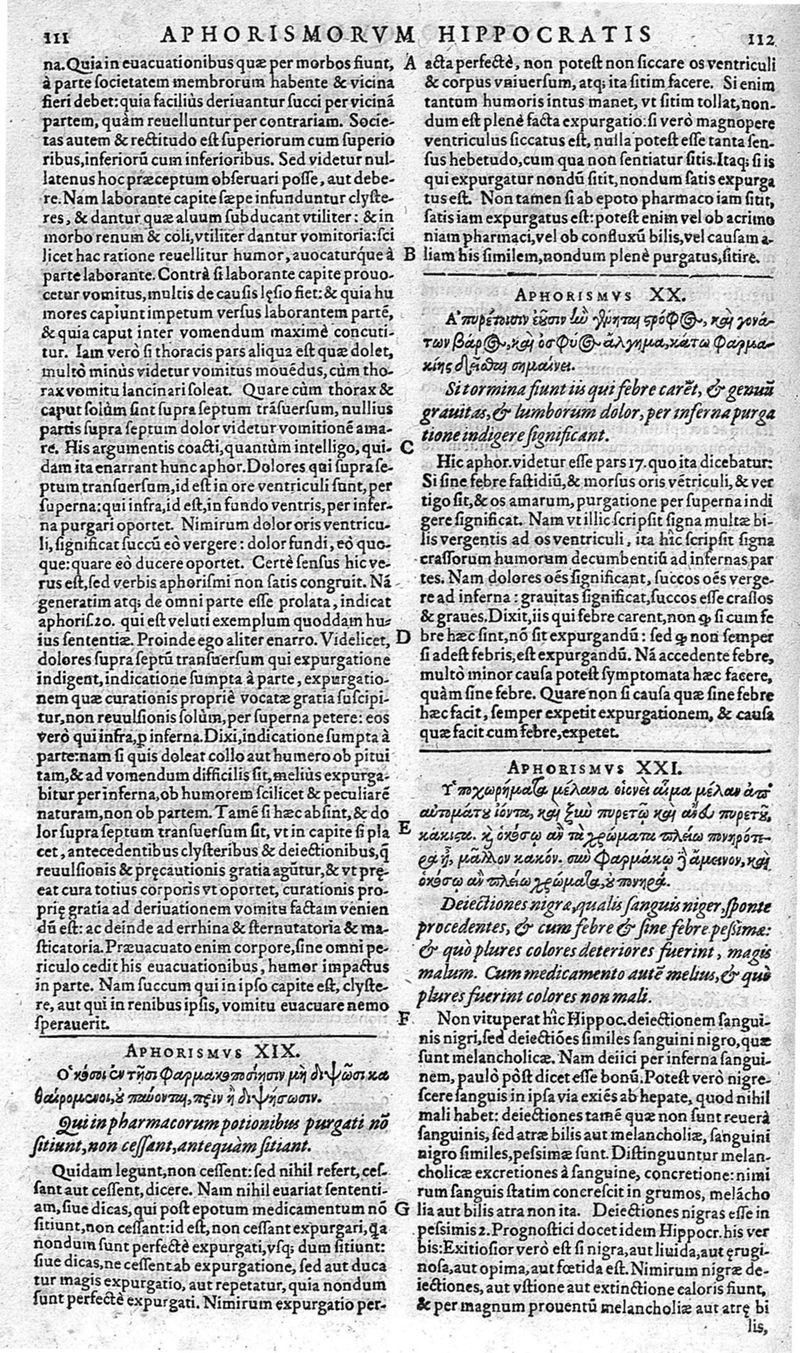 111 APHORISMORVM HIPPOCRATIS 112
na. Quia in euacuationibus quæ per morbos fiunt,
à parte societatem membrorum habente & vicina
fieri debet: quia facilius deriuantur succi per vicinā
partem, quàm reuelluntur per contrariam. Socie-
tas autem & rectitudo est superiorum cum superio
ribus, inferiorū cum inferioribus. Sed videtur nul-
latenus hoc præceptum obseruari posse, aut debe-
re. Nam laborante capite sæpe infunduntur clyste-
res, & dantur quæ aluum subducant vtiliter: & in
morbo renum & coli, vtiliter dantur vomitoria: sci
licet hac ratione reuellitur humor, auocaturque à
parte laborante. Contrà si laborante capite prouo-
cetur vomitus, multis de causis lęsio fiet: & quia hu
mores capiunt impetum versus laborantem partē,
& quia caput inter vomendum maximè concuti-
tur. Iam verò si thoracis pars aliqua est quæ dolet,
multò minùs videtur vomitus mouēdus, cùm tho-
rax vomitu lancinari soleat. Quare cùm thorax &
caput solùm sint supra septum trāsuersum, nullius
partis supra septum dolor videtur vomitionē ama-
re. His argumentis coacti, quantum intelligo, qui-
dam ita enarrant hunc aphor. Dolores qui supra se-
ptum transuersum, id est in ore ventriculi sunt, per
superna: qui infra, id est, in fundo ventris, per infer-
na purgari oportet. Nimirum dolor oris ventricu-
li, significat succū eò vergere: dolor fundi, eò quo-
que: quare eò ducere oportet. Certè sensus hic ve-
rus est, sed verbis aphorismi non satis congruit. Nā
generatim atq; de omni parte esse prolata, indicat
aphoris. 20. qui est veluti exemplum quoddam hu-
ius sententiæ. Proinde ego aliter enarro. Videlicet,
dolores supra septū transuersum qui expurgatione
indigent, indicatione sumpta à parte, expurgatio-
nem quæ curationis propriè vocatæ gratia suscipi-
tur, non reuulsionis solùm, per superna petere: eos
verò qui infra, p inferna. Dixi, indicatione sumpta à
parte: nam si quis doleat collo aut humero ob pitui
tam, & ad vomendum difficilis sit, melius expurga-
bitur per inferna, ob humorem scilicet & peculiarē
naturam, non ob partem. Tamē si hæc absint, & do
lor supra septum transuersum sit, vt in capite si pla
cet, antecedentibus clysteribus & deiectionibus, q̄
reuulsionis & pręcautionis gratia agūtur, & vt pręe-
eat cura totius corporis vt oportet, curationis pro-
prię gratia ad deriuationem vomitu factam venien
dū est: ac deinde ad errhina & sternutatoria & ma-
sticatoria. Præuacuato enim corpore, sine omni pe-
riculo cedit his euacuationibus, humor impactus
in parte. Nam succum qui in ipso capite est, clyste-
re, aut qui in renibus ipsis, vomitu euacuare nemo
sperauerit.
APHORISMVS XIX.
Ὁκόσοι ἐν τῇσι φαρμακοποσίῃσιν μὴ διψῶσι κα
θαιρόμενοι, οὐ παύονται, πρὶν ἢ διψήσωσιν.
Qui in pharmacorum potionibus purgati nō
sitiunt, non cessant, antequàm sitiant.
Quidam legunt, non cessent: sed nihil refert, ces-
sant aut cessent, dicere. Nam nihil euariat sententi-
am, siue dicas, qui post epotum medicamentum nō
sitiunt, non cessant: id est, non cessant expurgari, qa
nondum sunt perfectè expurgati, vsq; dum sitiunt:
siue dicas, ne cessent ab expurgatione, sed aut duca
tur magis expurgatio, aut repetatur, quia nondum
sunt perfectè expurgati. Nimirum expurgatio per-
A
B
C
D
E
F
G
acta perfectè, non potest non siccare os ventriculi
& corpus vniuersum, atq; ita sitim facere. Si enim
tantum humoris intus manet, vt sitim tollat, non-
dum est plenè facta expurgatio: si verò magnopere
ventriculus siccatus est, nulla potest esse tanta sen-
sus hebetudo, cum qua non sentiatur sitis. Itaq; si is
qui expurgatur nondū sitit, nondum satis expurga
tus est. Non tamen si ab epoto pharmaco iam sitit,
satis iam expurgatus est: potest enim vel ob acrimo
niam pharmaci, vel ob confluxū bilis, vel causam a-
liam his similem, nondum plenè purgatus, sitire.
APHORISMVS XX.
Ἀπυρέτοισιν ἐοῦσιν ἢν γένηται στρόφος, καὶ γονά-
των βάρος, καὶ ὀσφύος ἄλγημα, κάτω φαρμα-
κίης δεῖσθαι σημαίνει.
Si tormina fiunt iis qui febre carēt, & genuū
grauitas, & lumborum dolor, per inferna purga
tione indigere significant.
Hic aphor. videtur esse pars 17. quo ita dicebatur:
Si sine febre fastidiū, & morsus oris vētriculi, & ver
tigo sit, & os amarum, purgatione per superna indi
gere significat. Nam vt illic scripsit signa multæ bi-
lis vergentis ad os ventriculi, ita hîc scripsit signa
crassorum humorum decumbentiū ad infernas par
tes. Nam dolores oēs significant, succos oēs verge-
re ad inferna: grauitas significat, succos esse crassos
& graues. Dixit, iis qui febre carent, non qp si cum fe
bre hæc sint, nō sit expurgandū: sed qp non semper
si adest febris, est expurgandū. Nā accedente febre,
multò minor causa potest symptomata hæc facere,
quàm sine febre. Quare non si causa quæ sine febre
hæc facit, semper expetit expurgationem, & causa
quæ facit cum febre, expetet.
APHORISMVS XXI.
Ὑποχωρήματα μέλανα οἱονεὶ αἷμα μέλαν ἀπὸ
αὐτομάτου ἰόντα, καὶ ξὺν πυρετῷ καὶ ἄνευ πυρετοῦ,
κάκιστα. καὶ ὁκόσῳ ἂν τὰ χρώματα πλείω πονηρότε-
ρα ᾖ, μᾶλλον κακόν. σὺν φαρμάκῳ δὲ ἄμεινον, καὶ
ὁκόσῳ ἂν πλείω χρώματα, οὐ πονηρά.
Deiectiones nigræ, qualis sanguis niger, sponte
procedentes, & cum febre & sine febre pessimæ:
& quò plures colores deteriores fuerint, magis
malum. Cum medicamento autē melius, & quò
plures fuerint colores non mali.
Non vituperat hîc Hippoc. deiectionem sangui-
nis nigri, sed deiectiōes similes sanguini nigro, quæ
sunt melancholicæ. Nam deiici per inferna sangui-
nem, paulò pòst dicet esse bonū. Potest verò nigre-
scere sanguis in ipsa via exiēs ab hepate, quod nihil
mali habet: deiectiones tamē quæ non sunt reuerà
sanguinis, sed atræ bilis aut melancholiæ, sanguini
nigro similes, pessimæ sunt. Distinguuntur melan-
cholicæ excretiones à sanguine, concretione: nimi
rum sanguis statim concrescit in grumos, melācho
lia aut bilis atra non ita. Deiectiones nigras esse in
pessimis 2. Prognostici docet idem Hippocr. his ver
bis: Exitiosior verò est si nigra, aut liuida, aut ęrugi-
nosa, aut opima, aut fœtida est. Nimirum nigræ de-
iectiones, aut vstione aut extinctione caloris fiunt,
& per magnum prouentū melancholiæ aut atrę bi
lis,